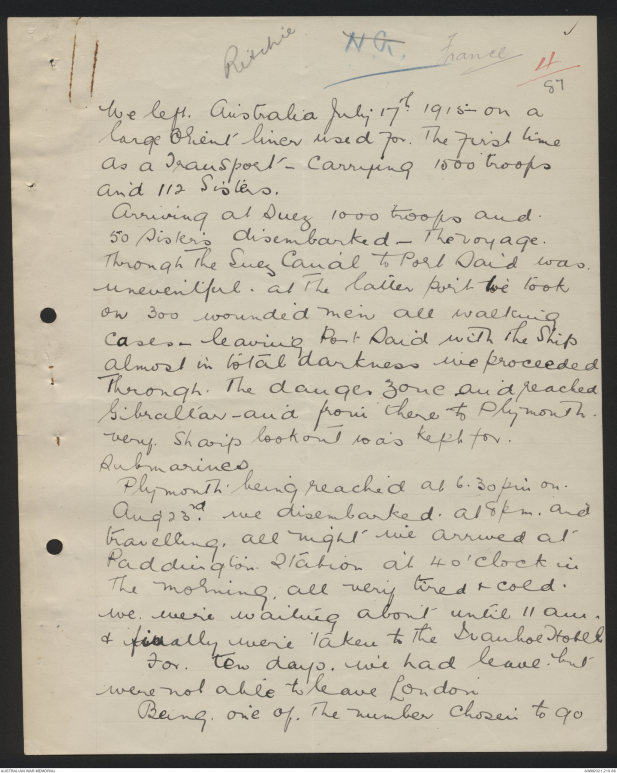 Ritchie
N.G.
France
4
87
We left. Australia July 17th 1915 - on a
large Orient liner used for. The first time
as a Transport - Carrying 1500 troops
and 112 Sisters.
Arriving at Suez 1000 troops and.
50 Sisters disembarked - The voyage.
Through the Suez Canal to Port Said was.
uneventful. at the latter port we took
on 300 wounded men all walking
cases - leaving Port Said with the Ship
almost in total darkness we proceeded
Through. The danger zone and reached
Gibraltar - and from there to Plymouth.
very. Sharp lookout was kept for.
Submarines
Plymouth being reached at 6.30 pm on.
Aug 23rd. we disembarked. at 8 pm. and
travelling. all night we arrived at
Paddington Station at 4 o'clock in
The morning, all very tired + cold.
we. were waiting about until 11 am.
+ finally were taken to the Ivanhoe Hotel
For. ten days. we had leave but
were not able to leave London
Being. one of. The number chosen to go
AUSTRALIAN WAR MEMORIAL